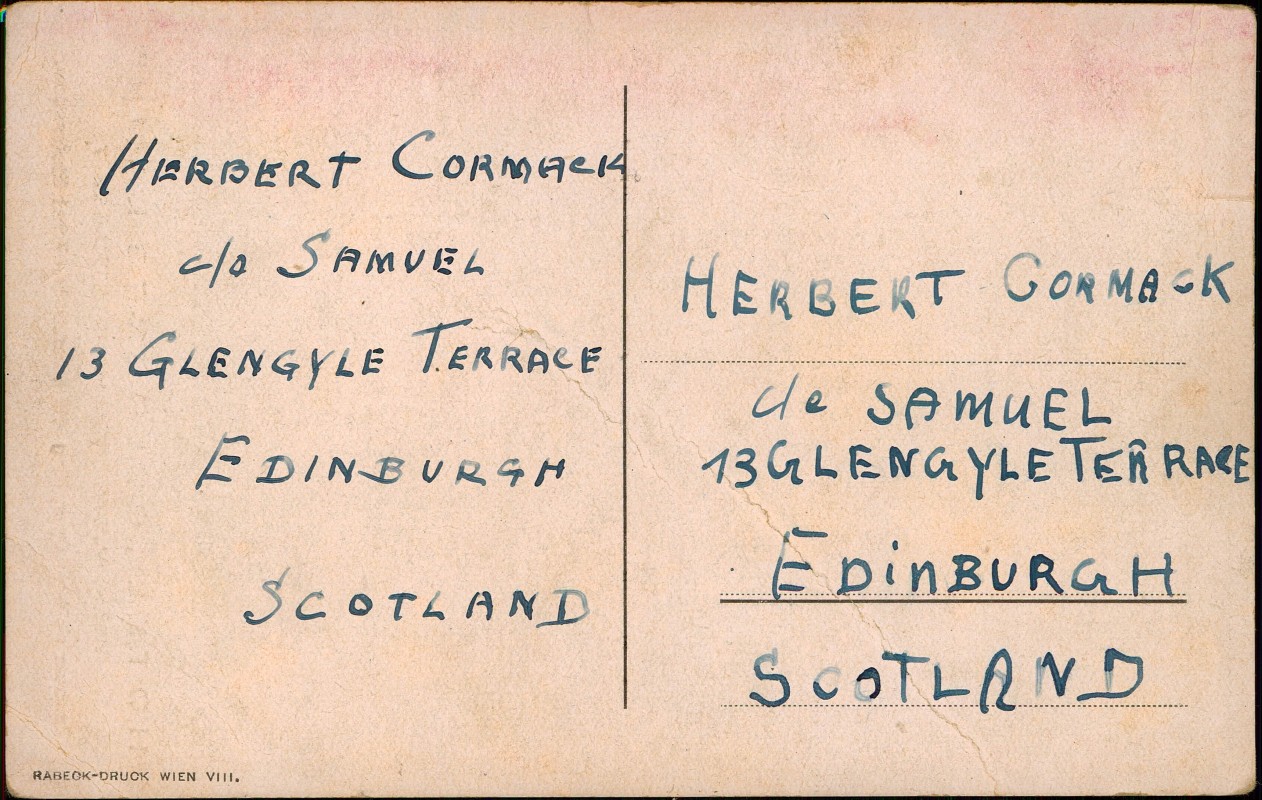 HERBERT CORMACK
c/o SAMUEL
13 GLENGYLE TERRACE
EDINBURGH
SCOTLAND
RABECK-DRUCK WIEN VIII.
HERBERT CORMACK
c/o SAMUEL
13 GLENGYLE TERRACE
EDiNBURGH
SCOTLAND